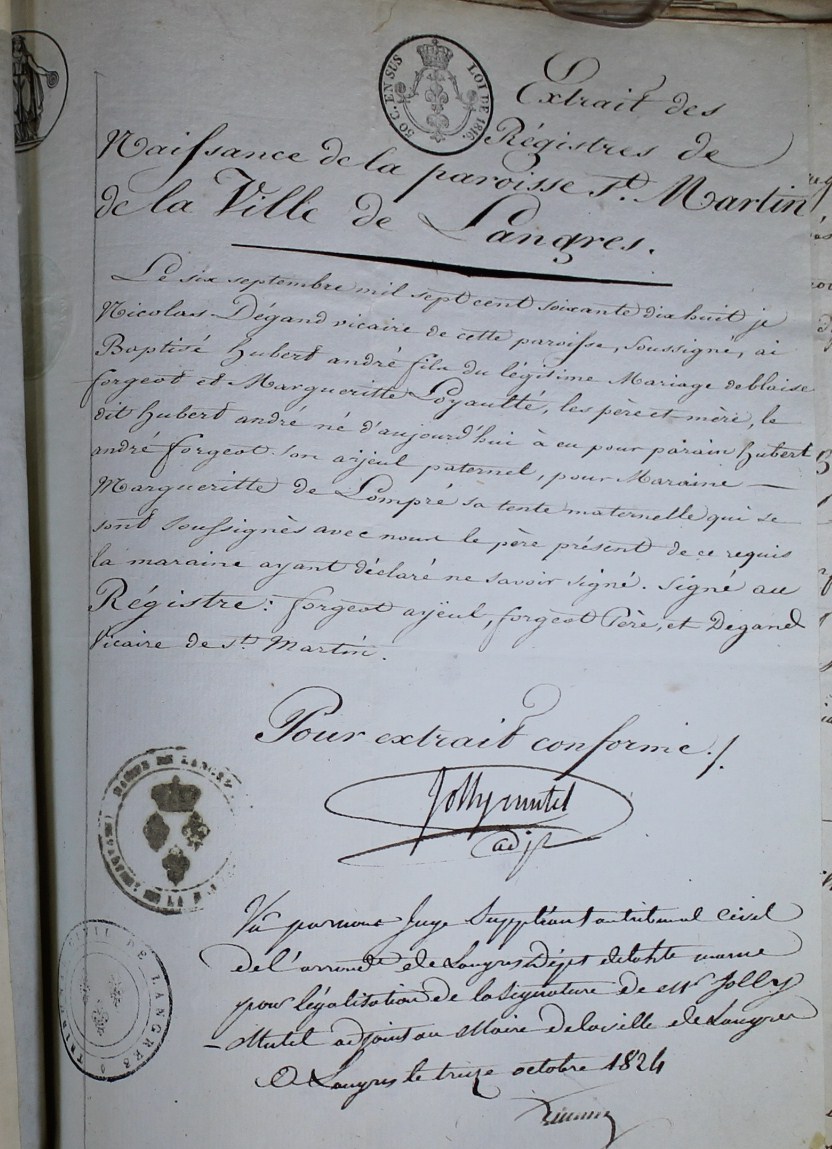 50 C. EN SUS LOI DE 1816.
Extrait des
Régistres de
Naissance de la paroisse St. Martin
de la Ville de Langres.
Le six septembre mil sept cent soixante dix huit je
Nicolas Dégand vicaire de cette paroisse, soussigné, ai
Baptisé hubert andré fils du légitime Mariage de blaise
forgeot et Margueritte Loyaulté, les père et mère, le
dit hubert andré né d'aujourd'hui à eu pour parain hubert
andré forgeot son ayeul paternel, pour Maraine —
Margueritte de Lompré sa tente maternelle qui se
sont soussignés avec nous le père présent de ce requis
la maraine ayant déclaré ne savoir signé. Signé au
Régistre: forgeot ayeul, forgeot Père, et Degand
Vicaire de St. Martin.
Pour extrait conforme ./.
Jolly mutel
adjt
MAIRIE DE LANGRES
Vu par nous Juge Suppléant au tribunal civil
de l'arrondt de Langres Dépt de la hte marne
pour légalisation de la signature de Mr Jolly
-Mutel adjoint au Maire de la ville de Langres
TRIBUNAL CIVIL DE LANGRES
A Langres le treize octobre 1824